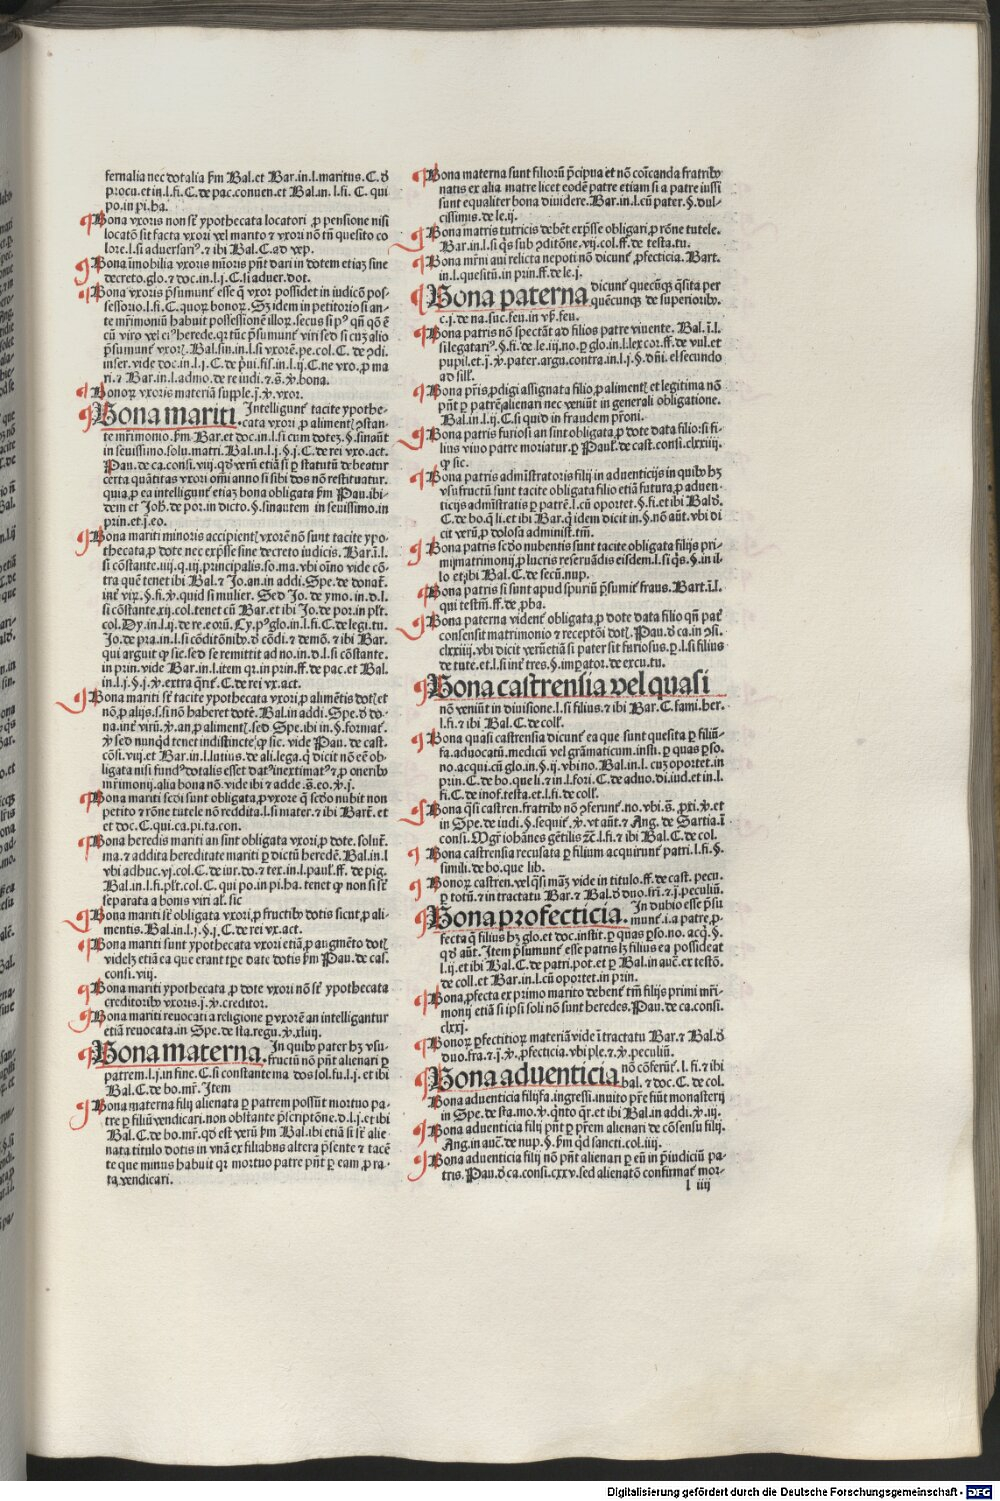 fernalia nec dotalia ẜm Bal. et Bar. in. l. maritus. C. ð
procu. et in. l. fi. C. de pac. conuen. et Bal. in. l. fi. C. qui
po. in pi. ha.
Bona vxoris non sūt ypothecata locatori ꝓ pensione nisi
locatō sit facta vxori vel marito ⁊ vxori nō tn̄ quesito co
lore. l. si aduersariꝰ. ⁊ ibi Bal. C. ad vep.
Bona īmobilia vxoris mīoris pn̄t dari in dotem etiaꝫ sine
decreto. glo. ⁊ doc. in. l. j. C. si aduer. dot.
Bona vxoris p̄sumunt̄ esse ꝙ vxor possidet in iudicō pos-
sessorio. l. fi. C. quoꝝ honoꝝ. Sꝫ idem in petitorio si an-
te mr̄imoniū habuit possessionē illoꝝ. secus si pꝰ qn̄ qō ē
cū viro vel eiꝰ herede. qꝛ tūc p̄sumunt̄ viri sed si cuꝫ alio
p̄sumunt̄ vxoꝝ. Bal. sin. in. l. si vxorē. pe. col. C. de ꝯdi.
inser. vide doc. in. l. j. C. de p̄ui. fis. in. l. ij. C. ne vxo. ꝓ ma
ri. ⁊ Bar. in. l. admo. de re iudi. ⁊. s̄. ꝟ. bona.
Bonoꝝ vxoris materiā supple. j. ꝟ. vxor.
Bona mariti. Intelligunt̄ tacite ypothe-
cata vxori ꝓ alimentꝭ ꝯstan-
te mr̄imonio. ẜm Bar. et doc. in. l. si cum doteꝫ. §. sinaūt
in seuissimo. solu. matri. Bal. in. l. j. §. j. C. de rei vxo. act.
Pau. de ca. consi. viij. qð verū etiā si ꝑ statutū debeatur
certa quātitas vxori omī anno si sibi dos nō restituatur.
quia ꝓ ea intelligunt̄ etiaꝫ bona obligata ẜm Pau. ibi-
dem et Joh. de por. in dicto. §. sinautem in seuissimo. in
prin. et. j. eo.
Bona mariti minoris accipientꝭ vxorē nō sunt tacite ypo-
thecata ꝓ dote nec exp̄sse sine decreto iudicis. Bar. ī. l.
si cōstante. iiij. q. iij. principalis. so. ma. vbi oīno vide cō-
tra quē tenet ibi Bal. ⁊ Jo. an. in addi. Spe. de donat̄.
int̄ viꝝ. §. fi. ꝟ. quid si mulier. Sed Jo. de ymo. in. d. l.
si cōstante. xij. col. tenet cū Bar. et ibi Jo. de por. in plr̄.
col. Dy. in. l. ij. de re. eorū. Cy. pꝰ glo. in. l. fi. C. de legi. tu.
Jo. de pra. in. l. si cōditōnibꝰ. ð cōdi. ⁊ demō. ⁊ ibi Bar.
qui arguit ꝙ sic. sed se remittit ad no. in. d. l. si cōstante.
in prin. vide Bar. in. l. item qꝛ. in prin. ff. de pac. et Bal.
in. l. j. §. j. ꝟ. extra qr̄nt̄. C. de rei vx. act.
Bona mariti sūt tacite ypothecata vxori ꝓ alimētis dotꝭ et
nō ꝓ alijs. l. si nō haberet dotē. Bal. in addi. Spe. ð do-
na. int̄ virū. ꝟ. an ꝓ alimentꝭ. sed Spe. ibi in. §. formant̄
ꝟ. sed nunqd tenet indistincte ꝙ sic. vide Pau. de cast.
cōsi. viij. et Bar. in. l. lutius. de ali. lega. ꝙ dicit nō eē ob-
ligata nisi fundꝰ dotalis esset datꝰ inextimatꝰ ⁊ ꝓ oneribꝰ
mr̄imonij. alia bona nō. vide ibi ⁊ adde. s̄. eo. ꝟ. j.
Bona mariti scd̄i sunt obligata ꝓ vxore ꝙ scd̄o nubit non
petito ⁊ rōne tutele nō reddita. l. si mater. ⁊ ibi Bart̄. et
et doc. C. qui. ca. pi. ta. con.
Bona heredis mariti an sint obligata vxori ꝓ dote. solut̄.
ma. ⁊ addita hereditate mariti ꝑ dictū heredē. Bal. in. l
vbi adhuc. vj. col. C. de iur. do. ⁊ ter. in. l. paul. ff. de pig.
Bal. in. l. fi. plr̄. col. C. qui po. in pi. ha. tenet ꝙ non si sūt
separata a bonis viri al̄. sic
Bona mariti sūt obligata vxori ꝓ fructibꝰ dotis sicut ꝓ ali-
mentis. Bal. in. l. j. §. j. C. de rei vx. act.
Bona mariti sunt ypothecata vxori etiā ꝓ augmēto dotꝭ
videlꝫ etiā ea que erant tꝑe date dotis ẜm Pau. de cas.
consi. viij.
Bona mariti ypothecata ꝓ dote vxori nō sūt ypothecata
creditoribꝰ vxoris. j. ꝟ. creditor.
Bona mariti reuocati a religione ꝑ vxorē an intelligantur
etiā reuocata. in Spe. de sta. regu. ꝟ. xliiij.
Bona materna. In quibꝰ pater hꝫ vsu-
fructū nō pn̄t alienari ꝑ
patrem. l. j. in fine. C. si constante ma dos sol. fu. l. j. et ibi
Bal. C. de bo. mr̄. Item
Bona materna filij alienata ꝑ patrem possūt mortuo pa-
tre ꝑ filiū vendicari. non obstāte p̄scriptōne. d. l. j. et ibi
Bal. C. de bo. mr̄. qð est verū ẜm Bal. ibi etiā si sūt alie-
nata titulo dotis in vnā ex filiabꝰ altera p̄sente ⁊ tacē
te que minus habuit qꝛ mortuo patre pn̄t ꝑ eam ꝓ ra-
ta vendicari.
Bona materna sunt filiorū p̄cipua et nō cōicanda fratribꝰ
natis ex alia matre licet eodē patre etiam si a patre iussi
sunt equaliter bona diuidere. Bar. in. l. cū pater. §. dul-
cissimus. de le. ij.
Bona matris tutricis debēt exp̄sse obligari ꝓ rōne tutele.
Bar. in. l. si qͥs sub ꝯditōne. vij. col. ff. de testa. tu.
Bona mr̄ni aui relicta nepoti nō dicunt̄ ꝓfecticia. Bart.
in. l. quesitū. in prin. ff. de le. j.
Bona paterna dicunt̄ quecūqꝫ qͥsita per
quēcunqꝫ de superioribꝰ.
c. j. de na. suc. feu. in vsꝰ. feu.
Bona patris nō spectāt ad filios patre viuente. Bal. ī. l.
si legatariꝰ. §. fi. de le. iij. no. ꝑ glo. in. l. lex cor. ff. de vul. et
pupil. et. j. ꝟ. pater. argu. contra. in. l. j. §. dn̄i. el secundo
ad sill.
Bona pr̄is ꝓdigi assignata filio ꝓ alimentꝭ et legitima nō
pn̄t ꝑ patrē alienari nec veniūt in generali obligatione.
Bal. in. l. ij. C. si quid in fraudem pr̄oni.
Bona patris furiosi an sint obligata ꝓ dote data filio: si fi-
lius viuo patre moriatur. ꝑ Paul. de cast. consi. clxxiiij.
ꝙ sic.
Bona patris admīstratoris filij in aduenticijs in quibꝰ hꝫ
vsufructū sunt tacite obligata filio etiā futura ꝓ aduen-
ticijs admīstratis ꝑ patrē. l. cū oportet. §. fi. et ibi Bald̄.
C. de bo. q̄ li. et ibi Bar. qͥ idem dicit in. §. nō aūt. vbi di
cit verū ꝓ dolosa administ. tm̄.
Bona patris scd̄o nubentis sunt tacite obligata filijs pri-
mi matrimonij ꝓ lucris reseruādis eisdem. l. si qͥs. §. in il-
lo et ibi Bal. C. de secū. nup.
Bona patris si sunt apud spuriū p̄sumit̄ fraus. Bart. ī. l.
qui testm̄. ff. de ꝓba.
Bona paterna vident̄ obligata ꝓ dote data filio qn̄ pat̄
consensit matrimonio ⁊ receptōi dotꝭ. Pau. ð ca. in ꝯsi.
clxxiiij. vbi dicit verū etiā si pater sit furiosus. ꝑ. l. si filius
de tute. et. l. si int̄ tres. §. imꝑator. de excu. tu.
Bona castrensia vel quasi
nō veniūt in diuisione. l. si filius. ⁊ ibi Bar. C. fami. her.
l. fi. ⁊ ibi Bal. C. de coll̄.
Bona quasi castrensia dicunt̄ ea que sunt quesita ꝑ filiū-
fa. aduocatū. medicū vel grāmaticum. insti. ꝑ quas ꝑso.
no. acqui. cū glo. in. §. ij. vbi no. Bal. in. l. cuꝫ oportet. in
prin. C. de bo. que li. ⁊ in. l. fori. C. de aduo. di. iud. et in. l.
fi. C. de inof. testa. et. l. fi. de coll̄.
Bona qͣsi castren. fratribꝰ nō ꝯferunt̄. no. vbi. s̄. ꝓxi. ꝟ. et
in Spe. de iudi. §. sequit̄. ꝟ. vt aūt. ⁊ Ang. de Sartia. ī
consi. Mgr̄ iohānes gētilis ꝛc̄. l. fi. ⁊ ibi Bal. C. de col.
Bona castrensia recusata ꝑ filium acquirunt̄ patri. l. fi. §.
simili. de bo. que lib.
Bonoꝝ castren. vel qͣsi māꝫ vide in titulo. ff. de cast. pecu.
ꝑ totū. ⁊ in tractatu Bar. ⁊ Bal. ð duo. fr̄. ⁊. j. peculiū.
Bona profecticia. In dubio esse p̄su
munt̄. i. a patre ꝓ-
fecta ꝙ filius hꝫ glo. et doc. instit. ꝑ quas ꝑso. no. acq. §.
qð aūt. Item p̄sumunt̄ esse patris lꝫ filius ea possideat
l. ij. et ibi Bal. C. de patri. pot. et ꝑ Bal. in auc̄. ex testō.
de coll. et Bar. in. l. cū oportet. in prin.
Bona ꝓfecta ex primo marito debent̄ tm̄ filijs primi mr̄i-
monij etiā si ipsi soli nō sunt heredes. Pau. de ca. consi.
clxxj.
Bonoꝝ ꝑfectitioꝝ materiā vide ī tractatu Bar. ⁊ Bal. ð
duo. fra. ⁊. j. ꝟ. ꝓfecticia. vbi ple. ⁊. ꝟ. peculiū.
Bona aduenticia nō cōferūt̄. l. fi. ⁊ ibi
bal. ⁊ doc. C. de col.
Bona aduenticia filijfa. ingressi. inuito pr̄e fiūt monasterij
in Spe. de sta. mo. ꝟ. qͥnto qr̄. et ibi Bal. in addi. ꝟ. iij.
Bona aduenticia filij pn̄t ꝑ pr̄em alienari de cōsensu filij.
Ang. in auc̄. de nup. §. ẜm qð sancti. col. iiij.
Bona aduenticia filij nō pn̄t alienari ꝑ eū in p̄iudiciū pa-
tris. Pau. ð ca. consi. cxxv. sed alienatō confirmat̄ mor-
l iiij
Digitalisierung gefördert durch die Deutsche Forschungsgemeinschaft - DFG